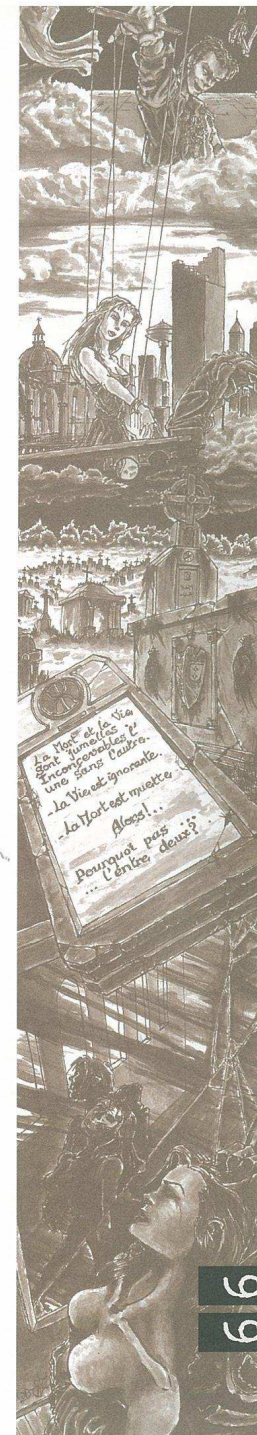 La Mort et la Vie
sont jumelles
Inconsevables l'
une sans l'autre.
- La Vie est ignorante.
- La Mort est muette
Alors!...
Pourquoi pas ...
... l'entre deux?
99